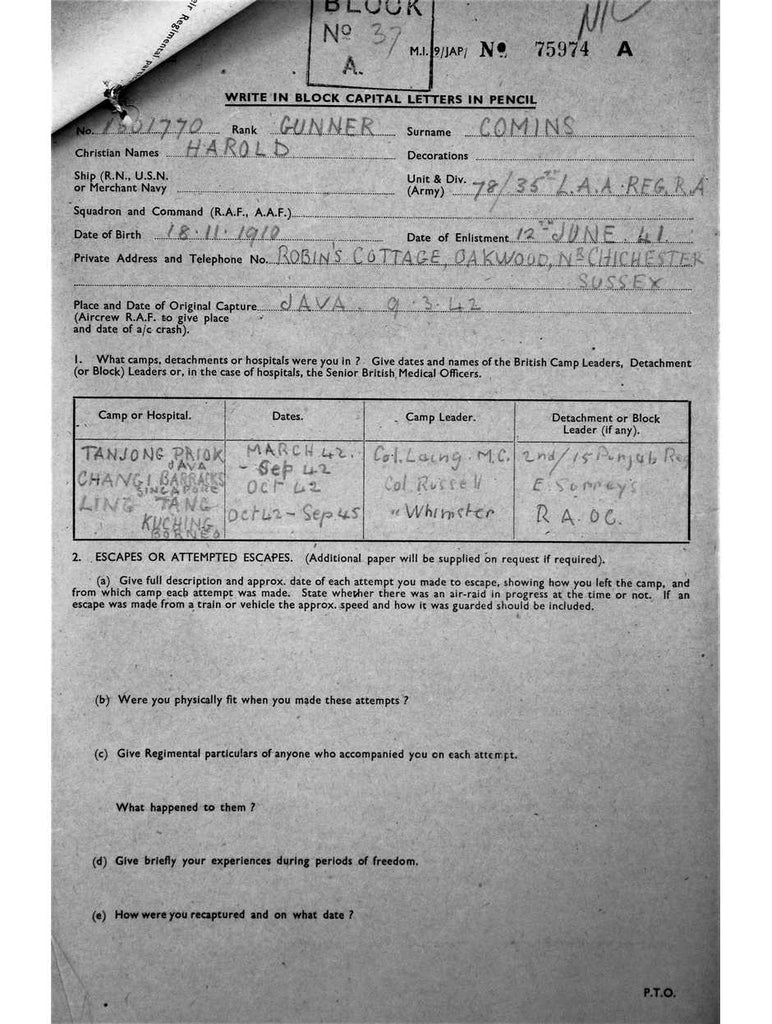 BLOCK
Nº 37
A.
M.I.9/JAP/ Nº 75974 A
WRITE IN BLOCK CAPITAL LETTERS IN PENCIL
No. 1801770 Rank GUNNER Surname COMINS
Christian Names HAROLD Decorations
Ship (R.N., U.S.N. or Merchant Navy
Unit & Div. (Army) 78/35TH L.A.A. REG. R.A
Squadron and Command (R.A.F., A.A.F.)
Date of Birth 18.11.1910 Date of Enlistment 12TH JUNE. 41.
Private Address and Telephone No. ROBIN'S COTTAGE, OAKWOOD, NR CHICHESTER
SUSSEX
Place and Date of Original Capture JAVA. 9.3.42
(Aircrew R.A.F. to give place
and date of a/c crash).
1. What camps, detachments or hospitals were you in ? Give dates and names of the British Camp Leaders, Detachment
(or Block) Leaders or, in the case of hospitals, the Senior British Medical Officers.
Camp or Hospital. Dates. Camp Leader. Detachment or Block Leader (if any).
TANJONG PRIOK JAVA MARCH 42. - Sep 42 Col. Laing. M.C. 2nd/15 Punjab Reg
CHANGI BARRACKS SINGAPORE OCT 42 Col. Russell E.
LING TANG KUCHING BORNEO Oct 42 - Sep 45 " Whimster R.A.OC.
2. ESCAPES OR ATTEMPTED ESCAPES. (Additional paper will be supplied on request if required).
(a) Give full description and approx. date of each attempt you made to escape, showing how you left the camp, and
from which camp each attempt was made. State whether there was an air-raid in progress at the time or not. If an
escape was made from a train or vehicle the approx. speed and how it was guarded should be included.
(b) Were you physically fit when you made these attempts ?
(c) Give Regimental particulars of anyone who accompanied you on each attempt.
What happened to them ?
(d) Give briefly your experiences during periods of freedom.
(e) How were you recaptured and on what date ?
P.T.O.